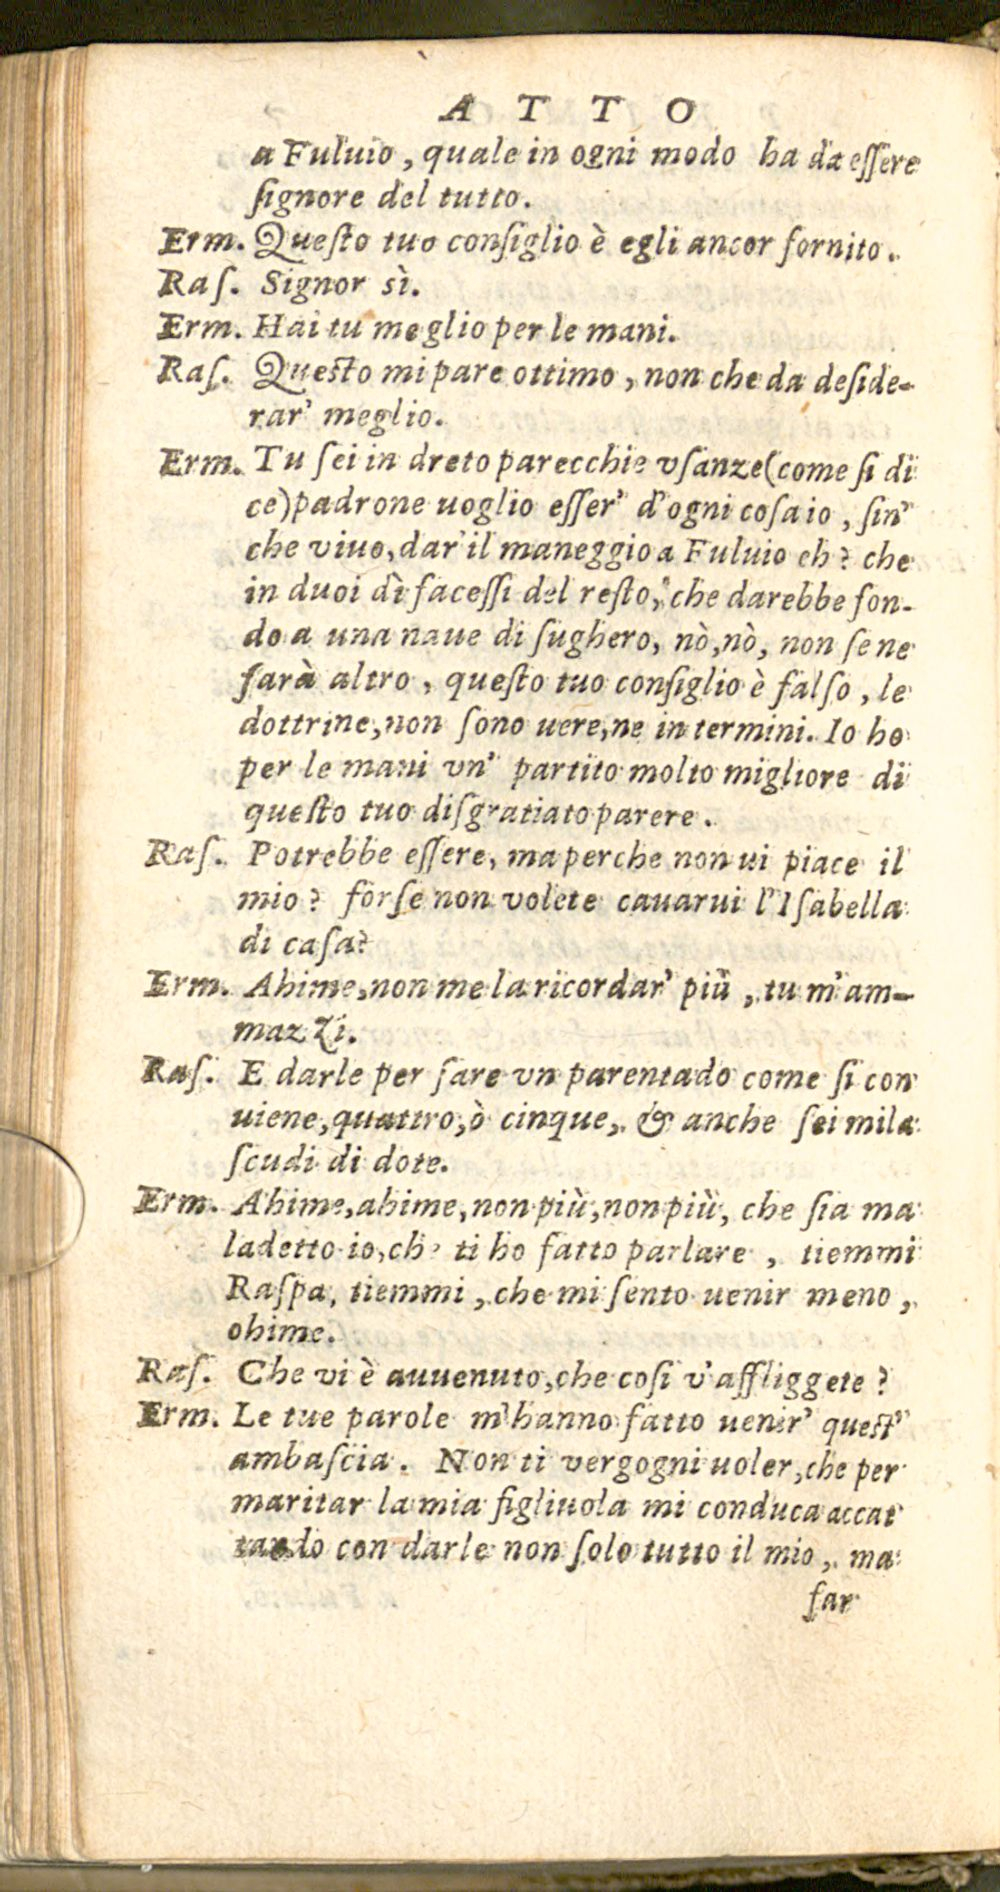 A T T O
a Fuluio, quale in ogni modo ha da eſſere
ſignore del tutto.
Erm. Queſto tuo conſiglio è egli ancor fornito.
Raſ. Signor sì.
Erm. Hai tu meglio per le mani.
Raſ. Queſto mi pare ottimo, non che da deſide-
rar' meglio.
Erm. Tu ſei in dreto parecchie vſanze (come ſi di
ce) padrone uoglio eſſer' d'ogni coſa io, ſin'
che viuo, dar' il maneggio a Fuluio eh? che
in duoi dì faceſſi del reſto, che darebbe fon-
do a una naue di ſughero, nò, nò, non ſe ne
farà altro, queſto tuo conſiglio è falſo, le
dottrine, non ſono uere, ne in termini. Io ho
per le mani vn' partito molto migliore di
queſto tuo diſgratiato parere.
Raſ. Potrebbe eſſere, ma perche non ui piace il
mio? forſe non volete cauarui l'Iſabella
di caſa?
Erm. Ahime, non me la ricordar' più, tu m'am-
mazzi.
Raſ. E darle per fare vn parentado come ſi con
uiene, quattro, ò cinque, & anche ſei mila
ſcudi di dote.
Erm. Ahime, ahime, non più, non più, che ſia ma
ladetto io, che ti ho fatto parlare, tiemmi
Raſpa, tiemmi, che mi ſento uenir meno,
ohime.
Raſ. Che vi è auuenuto, che coſi v'affliggete?
Erm. Le tue parole m'hanno fatto uenir' queſt'
ambaſcia. Non ti vergogni uoler, che per
maritar la mia figliuola mi conduca accat
tando con darle non ſolo tutto il mio, ma
far